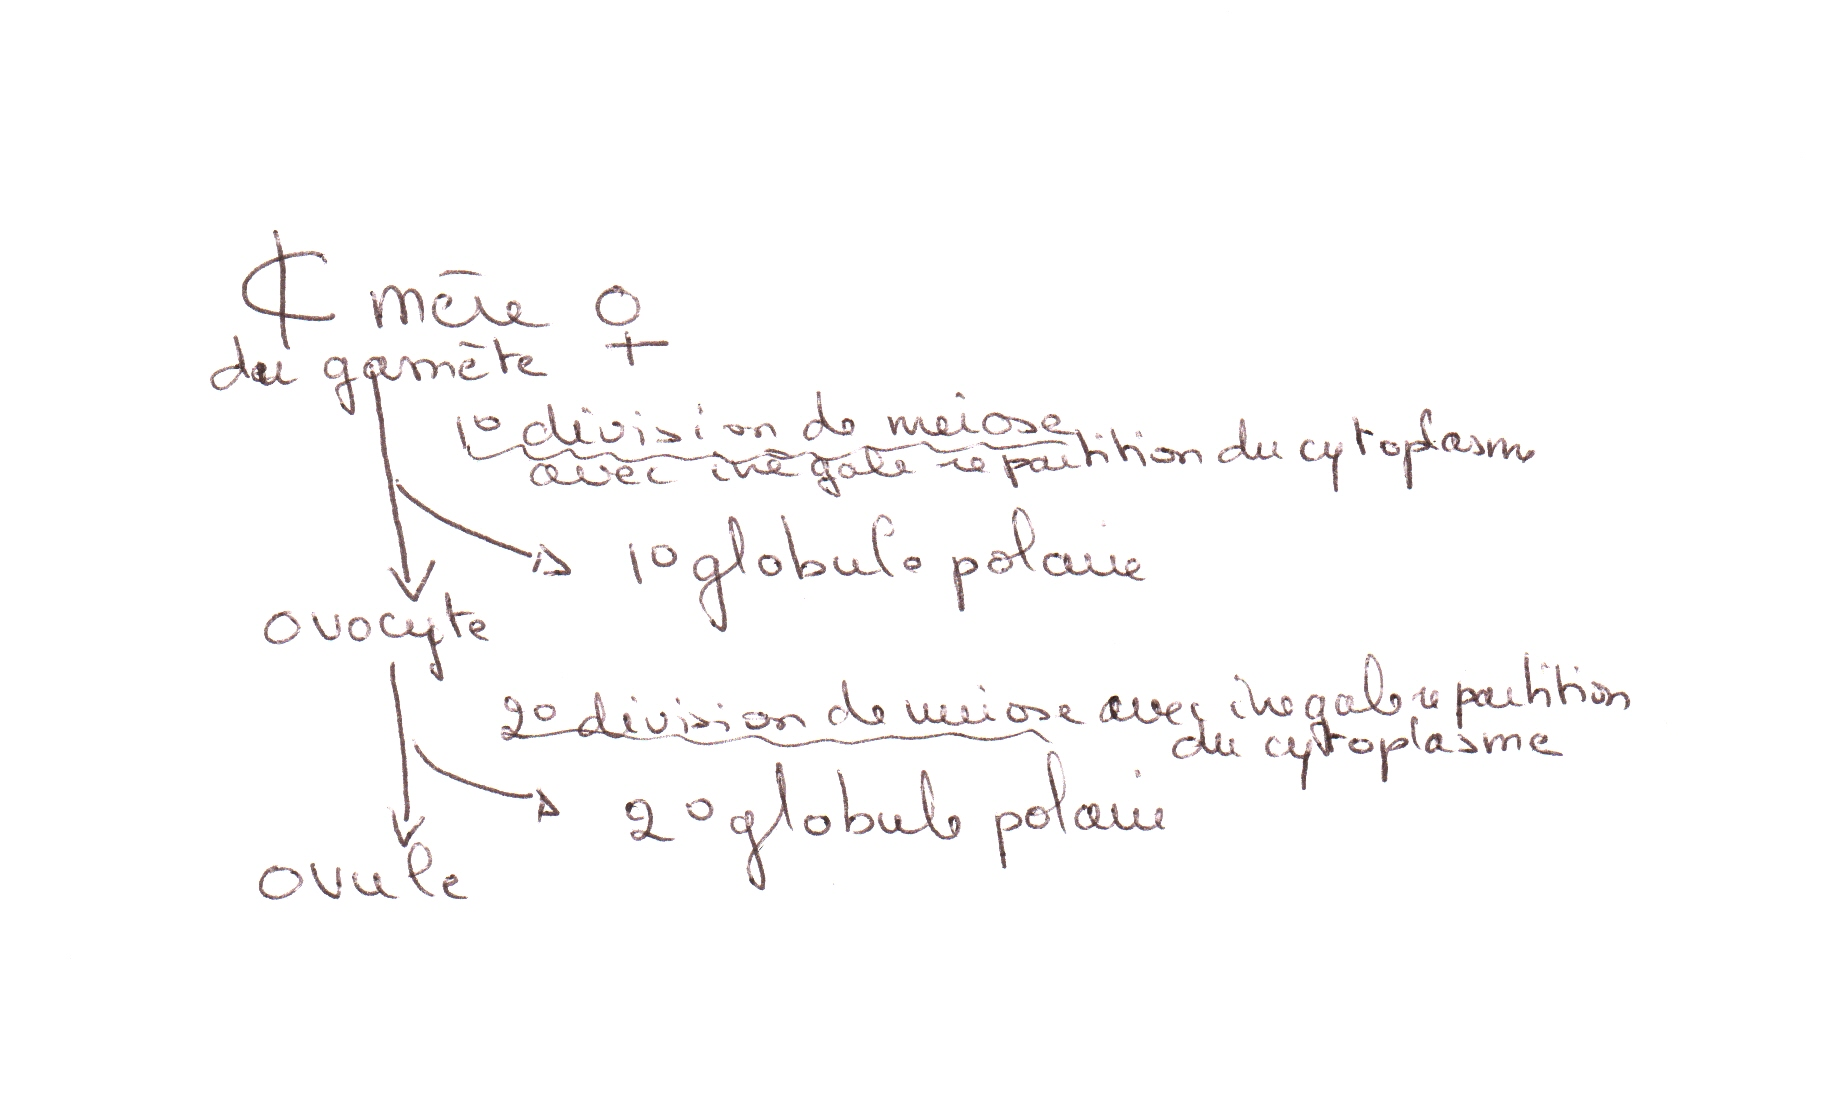 ₵ mère ♀
du gamète
1° division de meiose
avec inégale repartition du cytoplasme
1° globule polaire
ovocyte
2° division de meiose avec inegale repartition
du cytoplasme
2° globule polaire
ovule